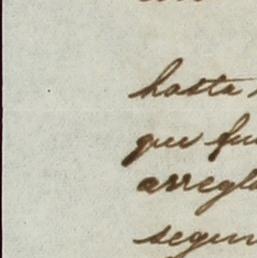 hasta
que fu
arregl
segun